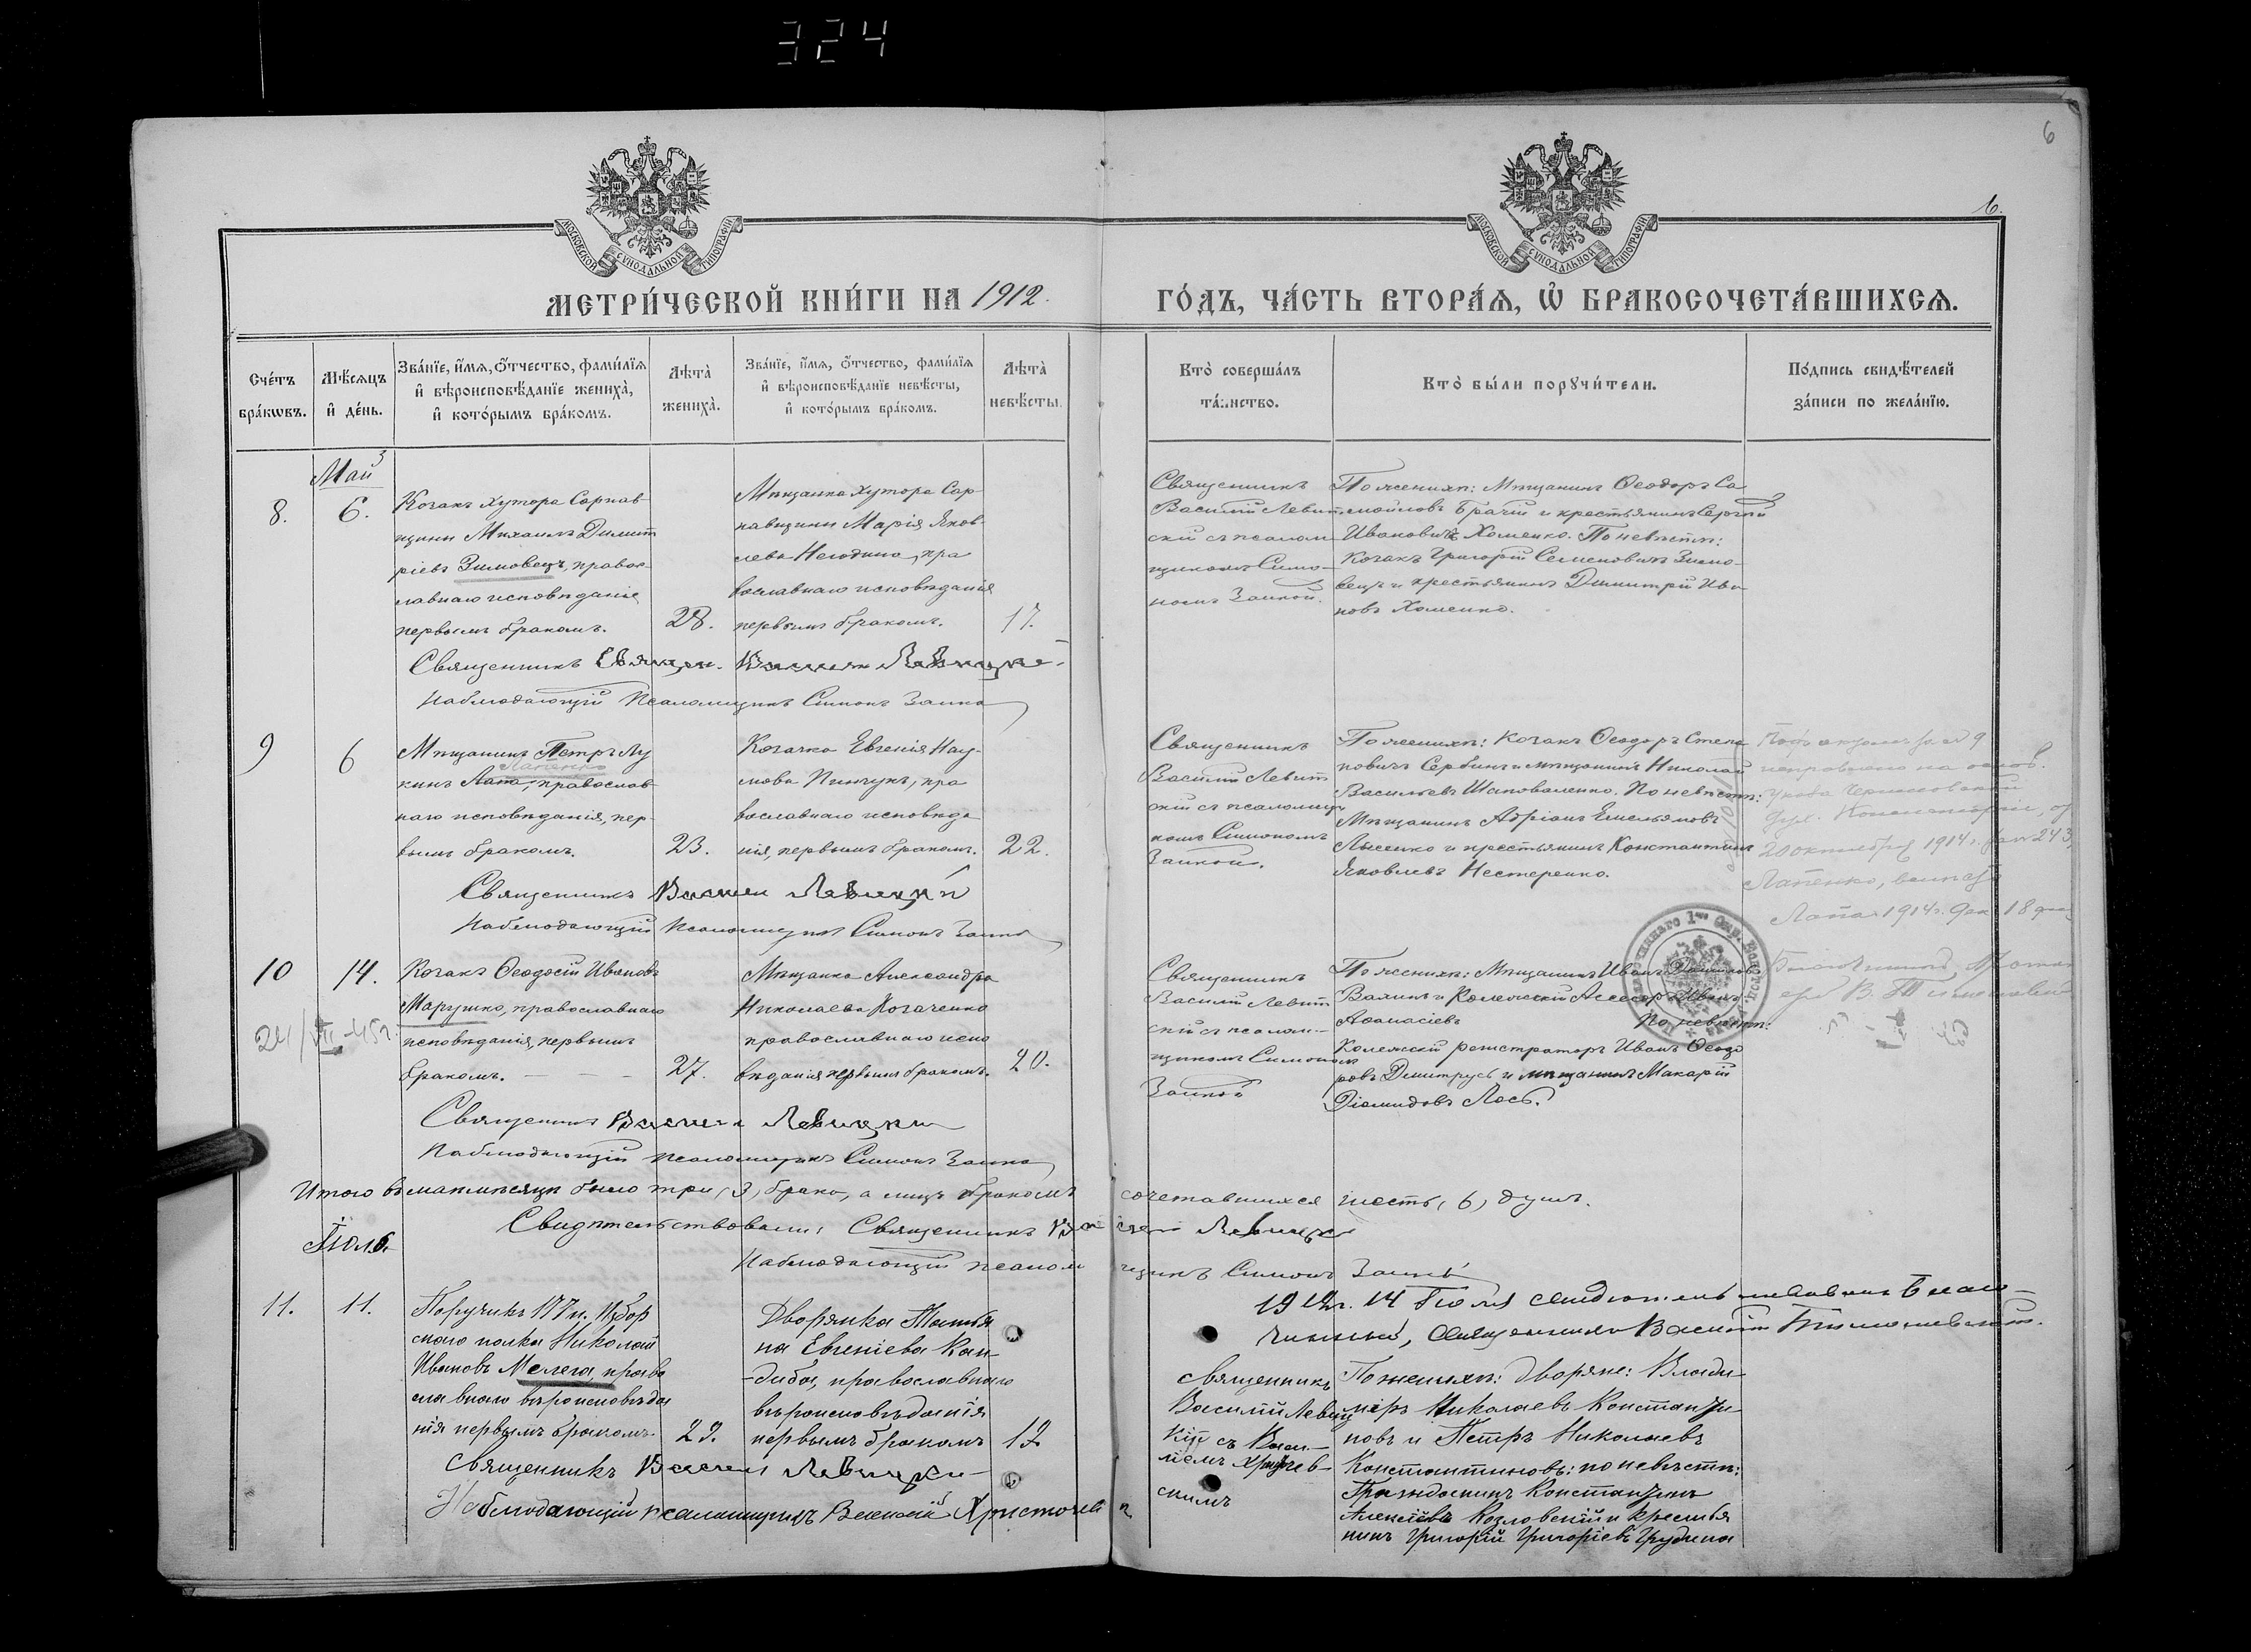 324
6
6.
МОСКОВСКОЙ СѴНОДАЛЬНОЙ ТИПОГРАФІИ
МОСКОВСКОЙ СѴНОДАЛЬНОЙ ТИПОГРАФІИ
МЕТРИ́ЧЕСКОЙ КНИ́ГИ НА 1912.
ГО́ДЪ, ЧА́СТЬ ВТОРА́Ѧ, Ѽ БРАКОСОЧЕТА́ВШИХСѦ.
Сче́тъ
бра́кѡвъ.
Мѣ́сѧцъ
и҆ де́нь.
Зва́нїе, и҆́мѧ, ѻ҆́тчество, фами́лїѧ
и҆ вѣроисповѣ́данїе жениха̀,
и҆ кото́рымъ бра́комъ.
Лѣта̀
жениха̀.
Зва́нїе, и҆́мѧ, ѻ҆́тчество, фами́лїѧ
и҆ вѣроисповѣ́данїе невѣ́сты,
и҆ кото́рымъ бра́комъ.
Лѣта̀
невѣ́сты.
Кто̀ соверша́лъ
та́инство.
Кто̀ бы́ли порꙋчи́тели.
По́дпись свидѣ́телей
за́писи по жела́нїю.
Май
8.
6.
Козакъ хутора Сарнав
щины Михаилъ Димит
ріевъ Зимовецъ, правос-
лавнаго исповѣданія
первымъ бракомъ.
28.
Мѣщанка хутора Сар-
навщины Марія Яков-
лева Негодина, пра
вославнаго исповѣданія
первымъ бракомъ.
17.
Священникъ
Василій Левит
скій съ псалом
щикомъ Симо-
номъ Заикой.
По женихѣ: Мѣщанинъ Ѳеодоръ Са
мойловъ и крестьянинъ Сергій
Ивановичъ Хоменко. По невѣстѣ:
Козакъ Григорій Семеновичъ Зимо-
вецъ и крестьянинъ Димитрій Ива
новъ Хоменко.
Священникъ Василій Левицкій
Наблюдающій Псаломщикъ Симонъ Заика
9
6
Мѣщанинъ Петръ Лу
Лапенко
кинъ Лапа, православ
наго исповѣданія, пер-
вымъ бракомъ.
23.
Козачка Евгенія Нау-
мова Пинчукъ, пра
вославнаго исповѣда
нія, первымъ бракомъ.
22.
Священникъ
Василій Левит
скій съ псаломщи
комъ Симономъ
Заикой.
По женихѣ: Козакъ Ѳеодоръ Степа
новичъ Сербинъ и мѣщанинъ Николай
Васильевъ Шаповаленко. По невѣстѣ:
Мѣщанинъ Адріанъ Емельяновъ
Лысенко и крестьянинъ Константинъ
Яковлевъ Нестеренко.
9
исправлено на основ.
указа Черниговской
дух. Консисторіи, от
20 октября 1914 г. за № 243,
Лапенко, вмѣсто
Лапа 1914 г. Дек. 18 дня
Священникъ Василій Левицкій
Наблюдающій Псаломщикъ Симонъ Заика
10
14.
24/VII-45г.
Козакъ Ѳеодосій Ивановъ
Марушко, православнаго
исповѣданія, первымъ
бракомъ. - - -
27.
Мѣщанка Александра
Николаева Козаченко
православнаго испо
вѣданія первымъ бракомъ.
20.
Священникъ
Василій Левит
скій съ псалом-
щикомъ Симоном
Заикой
По женихѣ: Мѣщанинъ Иванъ
и Колежскій Асесоръ Иванъ
Аѳанасіевъ По невѣстѣ:
Колежскій регистраторъ Иванъ Ѳеодо
ровъ Дмитрусь и мѣщанинъ Макарій
Діамидовъ Лось.
Благочинный, Протоі
ерей В.
Священникъ Василій Левицкій
Наблюдающій псаломщикъ Симонъ Заика
Итого въ маѣ мѣсяцѣ было три (3) брака, а лицъ бракомъ сочетавшихся шесть (6) душъ.
Свидѣтельствовали: Священникъ Василій Левицкій
Наблюдающій псаломщикъ Симонъ Заика
Іюль
1912 г. 14 Іюля свидѣтельствовалъ Благо-
чинный, священникъ Василій
11.
11.
Поручикъ 177 п. Избор
скаго полка Николай
Ивановъ Мелега, право
славнаго вѣроисповѣда
нія первымъ бракомъ.
29.
Дворянка Татья
на Евгеніева Кан-
-диба, православнаго
вѣроисповѣданія
первымъ бракомъ
Священникъ
Василій Левиц
кій съ Васи-
ліемъ
скимъ
По женихѣ: дворяне: Влади
міръ Николаевъ Константи
новъ и Петръ Николаевъ
Константиновъ: по невѣстѣ:
Гражданинъ Константинъ
Алексіевъ Козловскій и крестья
нинъ Григорій Григоріевъ Грудина
Священникъ Василій Левицкій
Наблюдающій псаломщикъ Василій